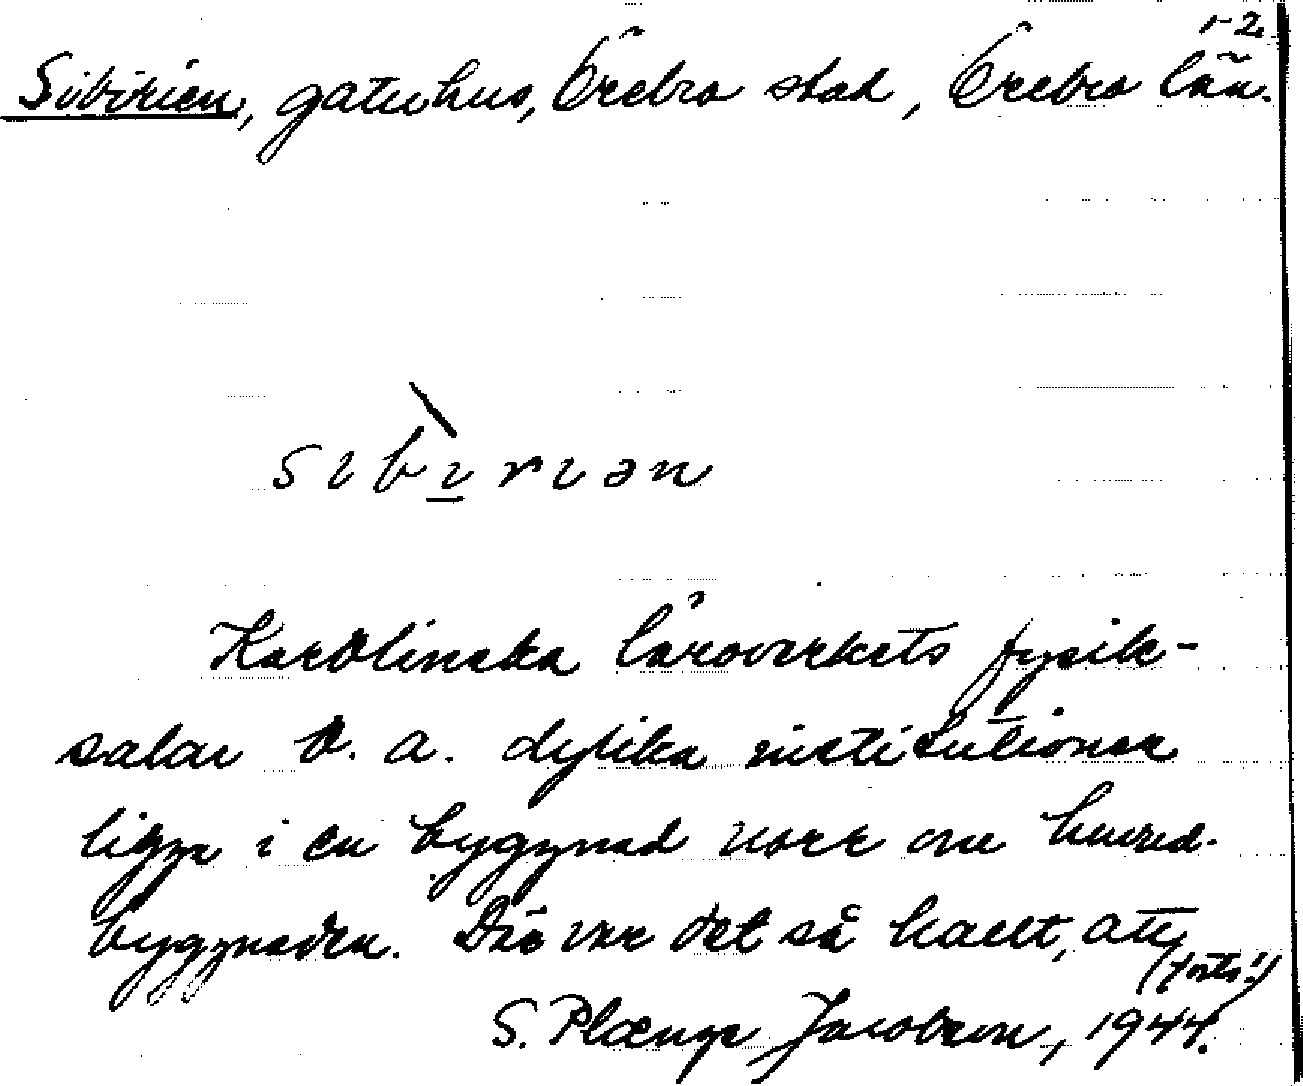 1-2
Sibirien, gatuhus, Örebro stad, Örebro län.
sibìriən
Karolinska läroverkets fysik-
salar o. a. dylika institutioner
ligga i en byggnad norr om huvud-
byggnaden. Där var det så kallt, att
(forts.!)
S. Plænge Jacobson, 1944.